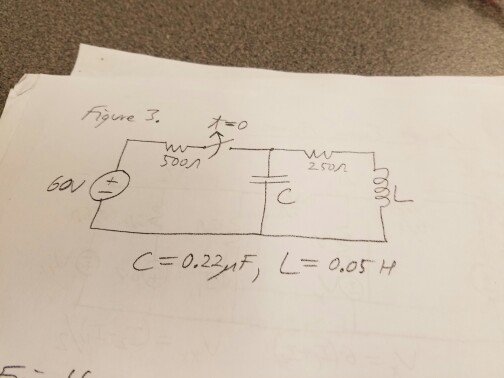 Figure 3.
t=0
500Ω
250Ω
60V
+
−
C
L
C=0.22µF, L=0.05 H